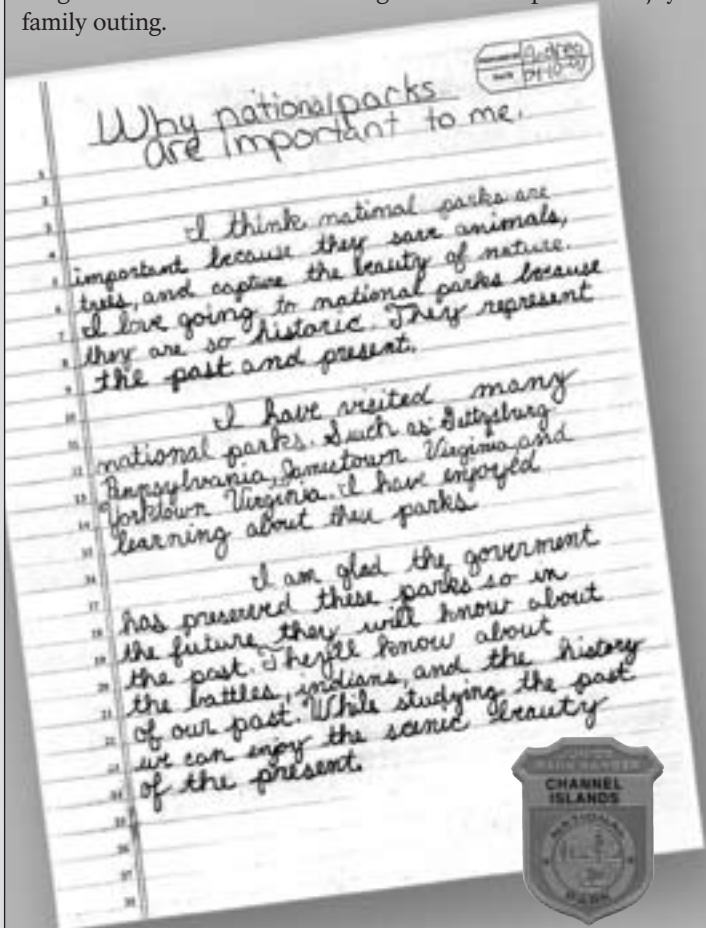 family outing.
Andrea
Why national parks
are important to me.
I think national parks are
important because they save animals,
trees, and capture the beauty of nature.
I love going to national parks because
they are so historic. They represent
the past and present.
I have visited many
national parks. Such as Gettysburg
Pennsylvania, Jamestown Virginia, and
Yorktown Virginia. I have enjoyed
learning about these parks
I am glad the goverment
has preserved these parks so in
the future they will know about
the past. They'll know about
the battles, indians, and the history
of our past. While studying the past
we can enjoy the scenic beauty
of the present.
JUNIOR
PARK RANGER
CHANNEL
ISLANDS
NATIONAL
PARK